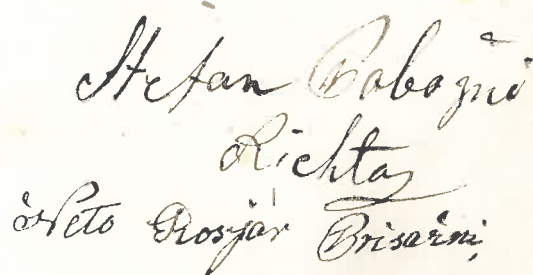 Stefan Pobožni
Richtar
Neto Rosjár Prisažni,